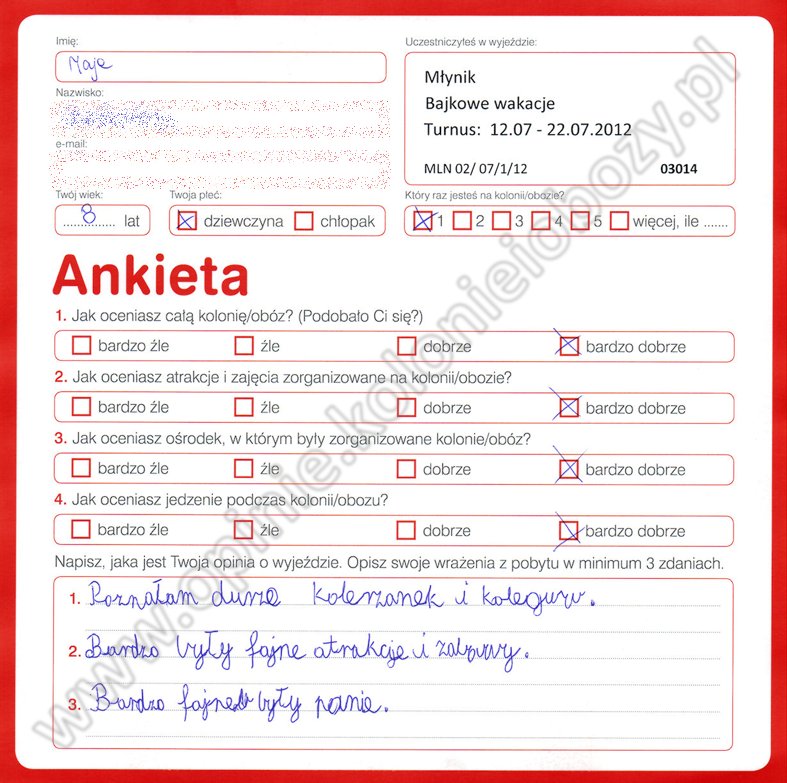 Imię:
Maja
Uczestniczyłeś w wyjeździe:
Młynik
Bajkowe wakacje
Turnus: 12.07 - 22.07.2012
MLN 02/ 07/1/12 03014
Nazwisko:
e-mail:
Twój wiek:
8 lat
Twoja płeć:
dziewczyna chłopak
Który raz jesteś na kolonii/obozie?
1 2 3 4 5 więcej, ile .......
Ankieta
1. Jak oceniasz całą kolonię/obóz? (Podobało Ci się?)
bardzo źle źle dobrze bardzo dobrze
2. Jak oceniasz atrakcje i zajęcia zorganizowane na kolonii/obozie?
bardzo źle źle dobrze bardzo dobrze
3. Jak oceniasz ośrodek, w którym były zorganizowane kolonie/obóz?
bardzo źle źle dobrze bardzo dobrze
4. Jak oceniasz jedzenie podczas kolonii/obozu?
bardzo źle źle dobrze bardzo dobrze
Napisz, jaka jest Twoja opinia o wyjeździe. Opisz swoje wrażenia z pobytu w minimum 3 zdaniach.
1. Poznałam durzo kolerzanek i koleguw.
2. Bardzo były fajne atrakcje i zabawy.
3. Bardzo fajne były panie.
www.opinie.kolonieiobozy.pl